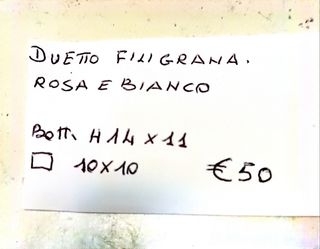 DUETTO FILIGRANA.
ROSA E BIANCO
Bott. H 14 x 11
10x10 €50